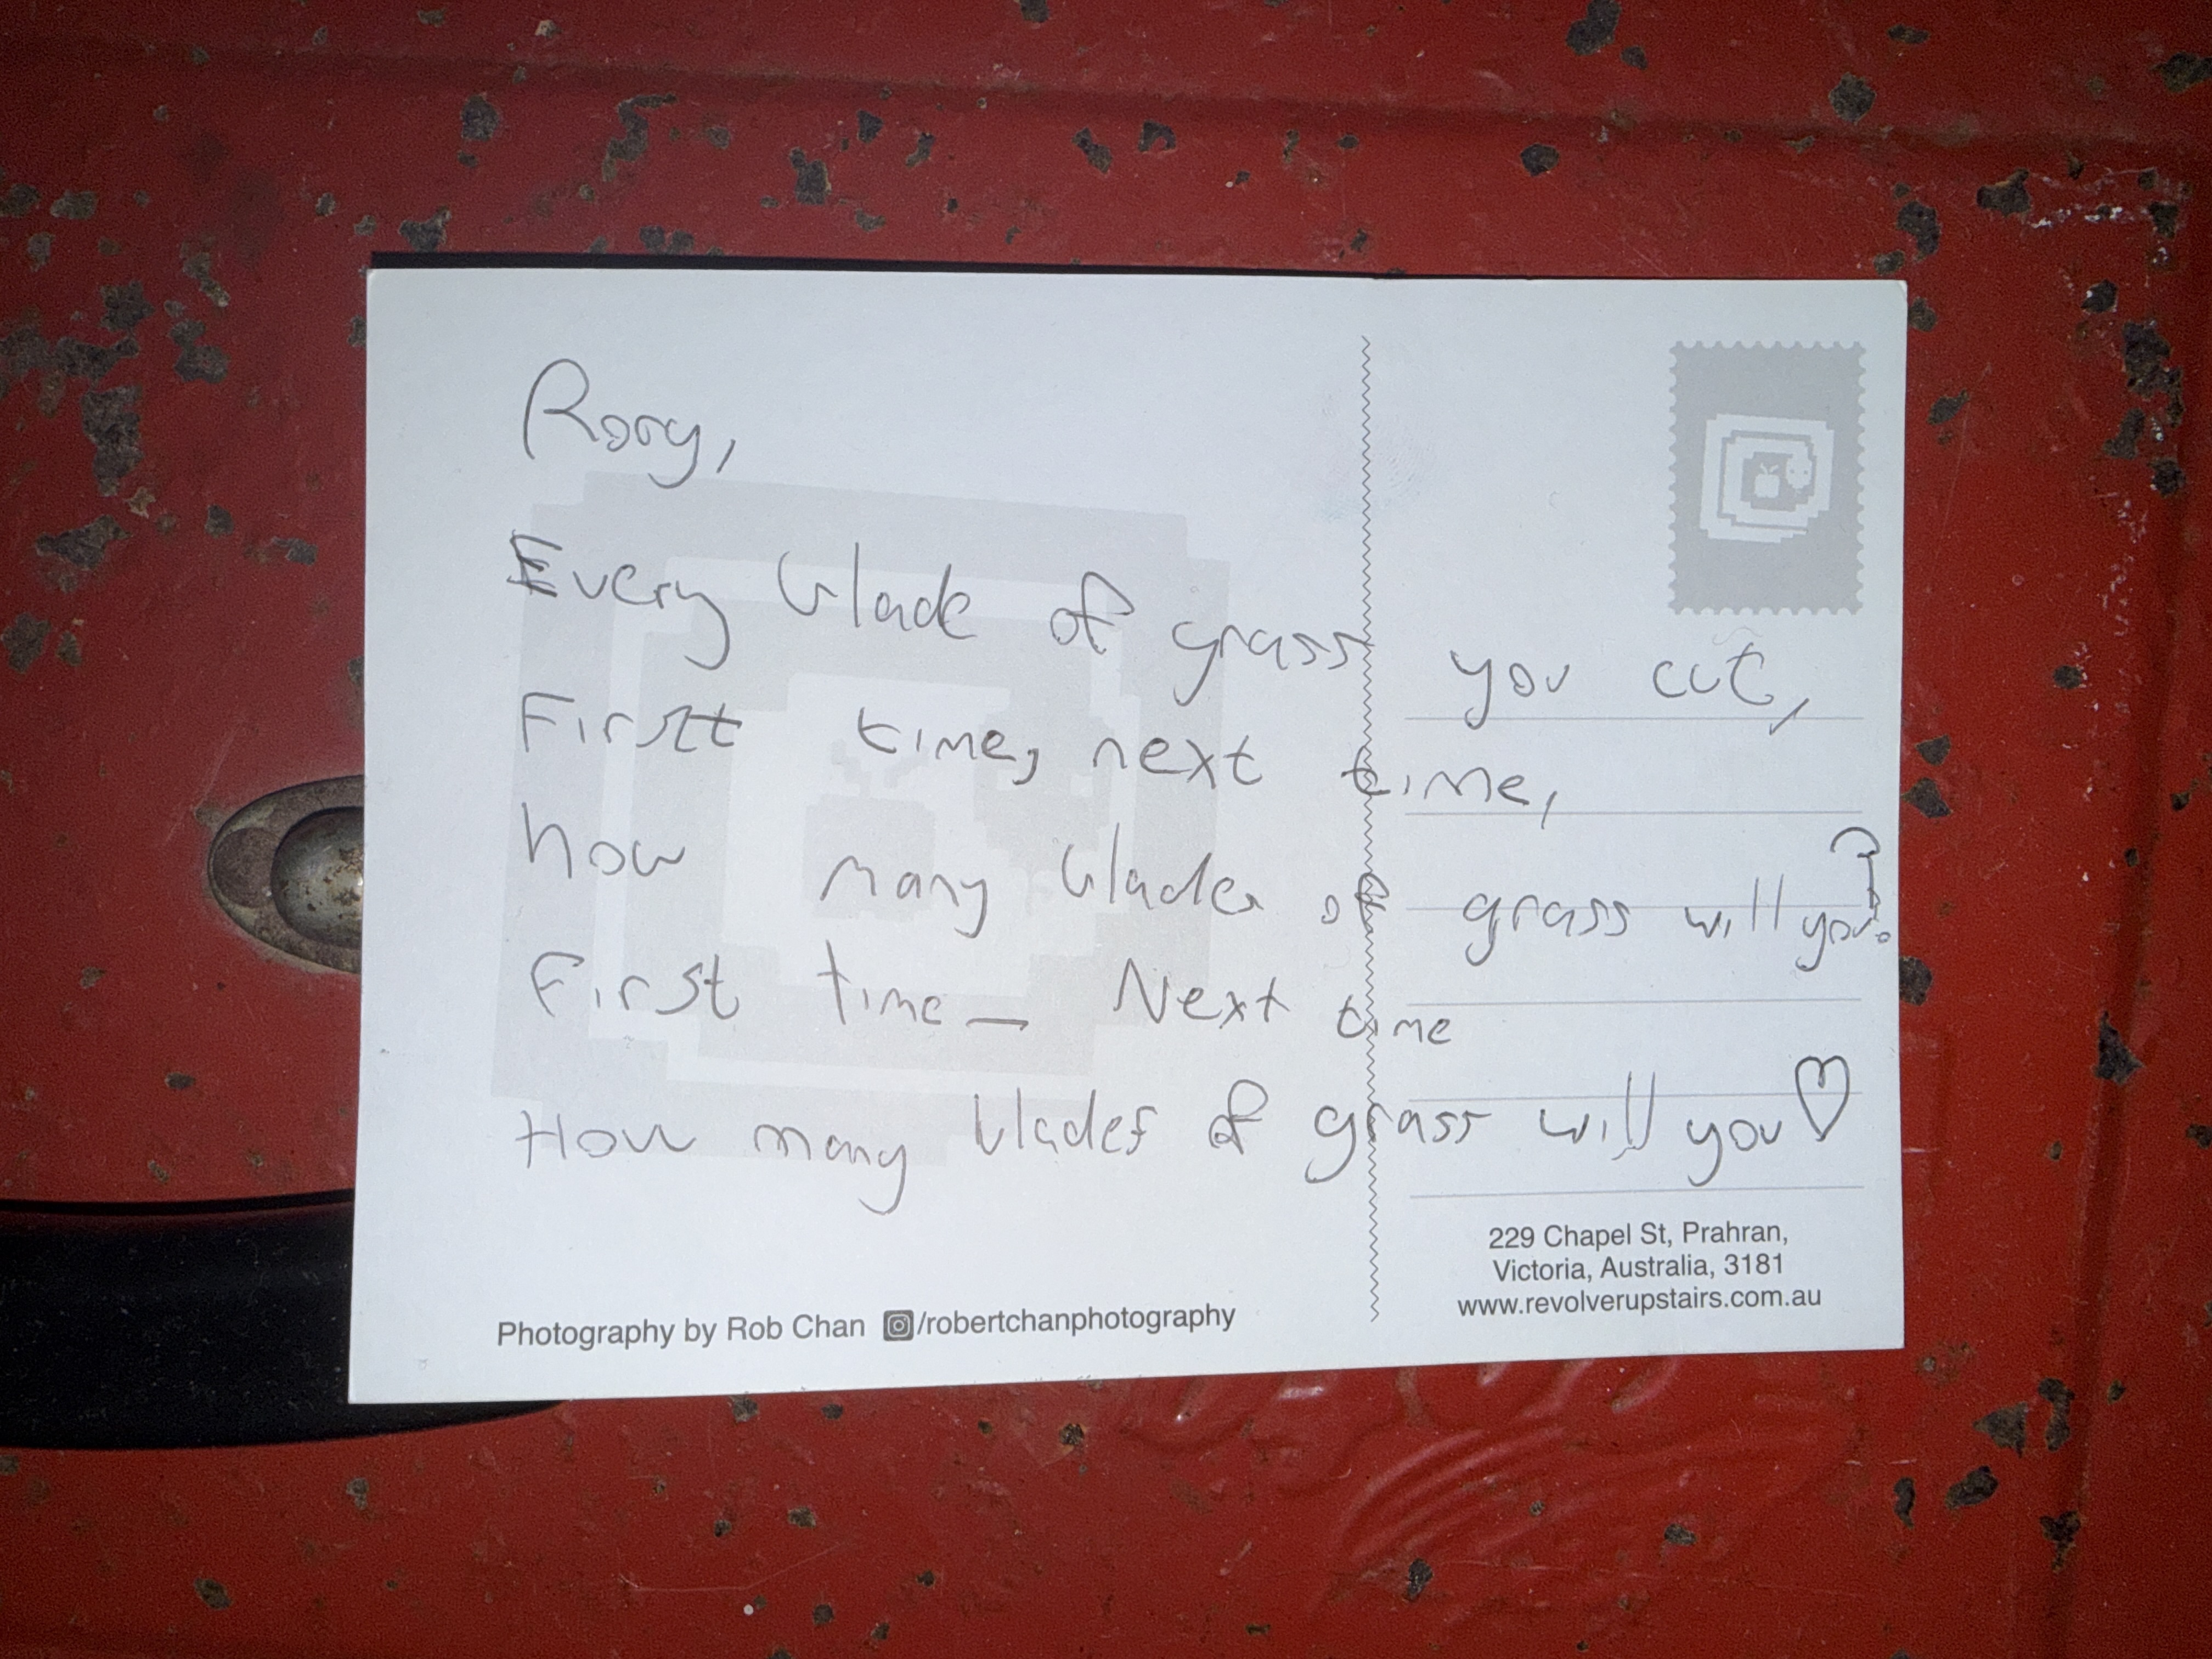 Rory,
Every blade of grass you cut,
First time, next time,
how many blades of grass will you?
First time - Next time
How many blades of grass will you♡
229 Chapel St, Prahran,
Victoria, Australia, 3181
www.revolverupstairs.com.au
Photography by Rob Chan /robertchanphotography